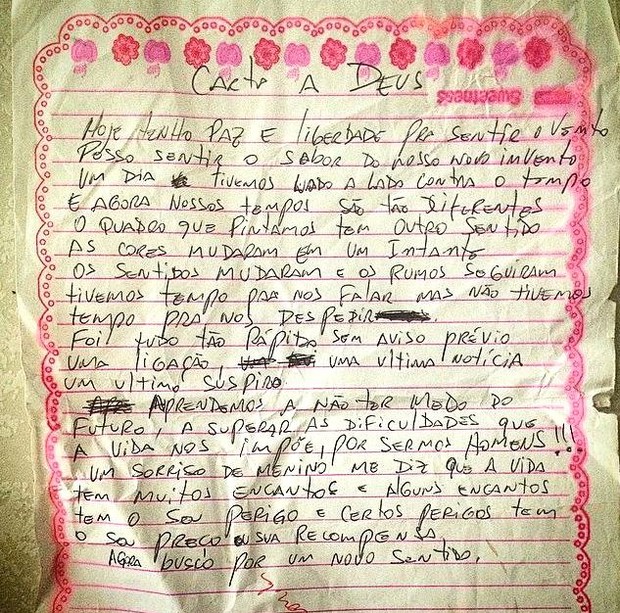 CARTA A DEUS
Sweetness
HOJE TENHO PAZ E LIBERDADE PRA SENTIR O VENTO
POSSO SENTIR O SABOR DO NOSSO NOVO INVENTO
UM DIA TIVEMOS LADO A LADO CONTRA O TEMPO
E AGORA NOSSOS TEMPOS SÃO TÃO DIFERENTES
O QUADRO QUE PINTAMOS TEM OUTRO SENTIDO
AS CORES MUDARAM EM UM INTANTE
OS SENTIDOS MUDARAM E OS RUMOS SEGUIRAM
TIVEMOS TEMPO PRA NOS FALAR MAS NÃO TIVEMOS
TEMPO PRA NOS DESPEDIR
FOI TUDO TÃO RÁPIDO SEM AVISO PRÉVIO
UMA LIGAÇÃO, UMA ULTIMA NOTÍCIA
UM ULTIMO SUSPIRO.
APRENDEMOS A NÃO TER MEDO DO
FUTURO, A SUPERAR AS DIFICULDADES QUE
A VIDA NOS IMPÕE, POR SERMOS HOMENS!!!
UM SORRISO DE MENINO ME DIZ QUE A VIDA
TEM MUITOS ENCANTOS E ALGUNS ENCANTOS
TEM O SEU PERIGO E CERTOS PERIGOS TEM
O SEU PREÇO OU SUA RECOMPENSA,
AGORA BUSCO POR UM NOVO SENTIDO.